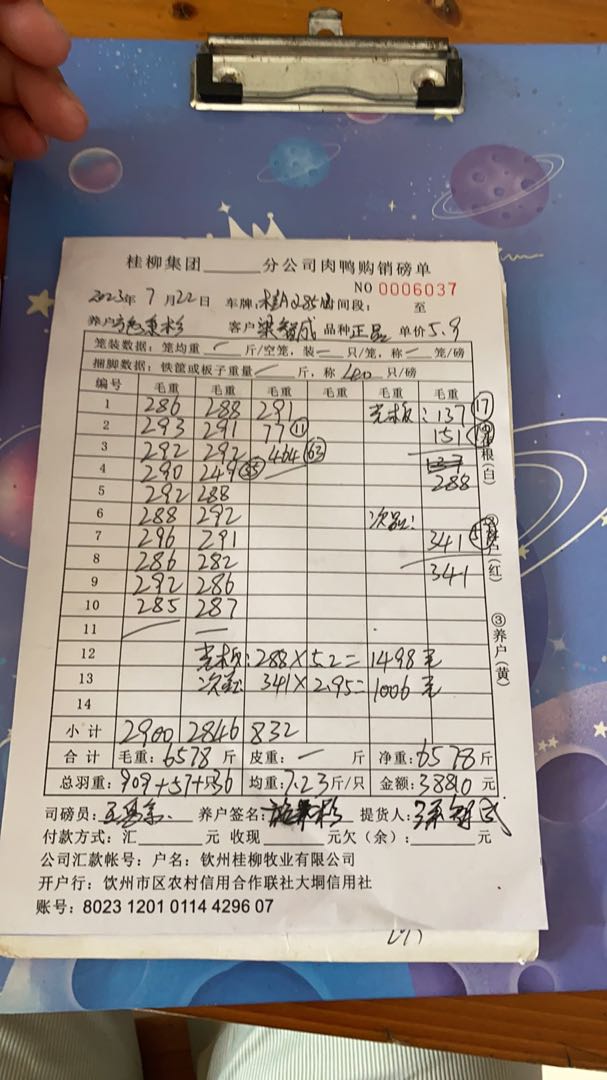 桂柳集团 分公司肉鸭购销磅单
NO 0006037
2023年 7月22日 车牌: 时间段: 至
养户 客户 梁智成 品种 正品 单价 5.9
笼装数据: 笼均重 — 斤/空笼, 装 — 只/笼, 称 — 笼/磅
捆脚数据: 铁筐或板子重量 — 斤, 称 只/磅
编号 毛重 毛重 毛重 毛重 毛重 毛重
1 286 288 291 : 137 17
2 293 291 77 11 151
3 292 292 464 63
4 290 249 35 288
5 292 288
6 288 292 次品:
7 296 291 341
8 286 282 341
9 292 286
10 285 287
11 — —
12 : 288×5.2=1498元
13 次品: 341×2.95=1006元
14
小计 2900 2846 832
合计 毛重: 6578 斤 皮重: — 斤 净重: 6578 斤
总羽重: 909+57+只36 均重: 7.23 斤/只 金额: 38810 元
司磅员: 养户签名: 提货人:
付款方式: 汇 元 收现 元欠(余): 元
公司汇款帐号: 户名: 钦州桂柳牧业有限公司
开户行: 钦州市区农村信用合作联社大垌信用社
账号: 8023 1201 0114 4296 07
根(白)
(红)
③养户(黄)